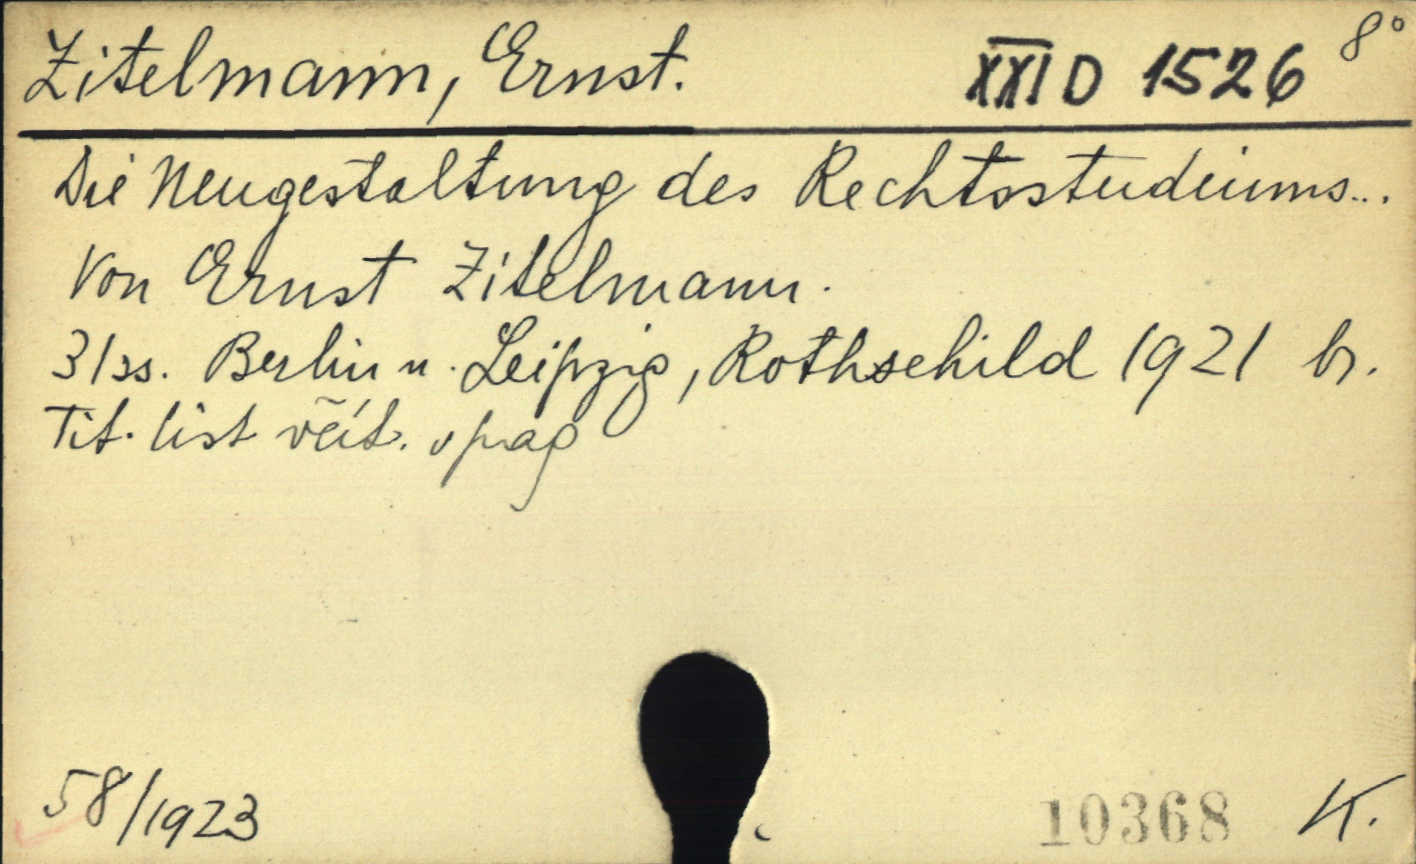 Zitelmann, Ernst. XXI D 1526 8°
Die Neugestaltung des Rechtsstudiums...
Von Ernst Zitelmann.
31 ss. Berlin u. Leipzig, Rothschild 1921 br.
Tit. list včít. v pag
58/1923 10368 K.